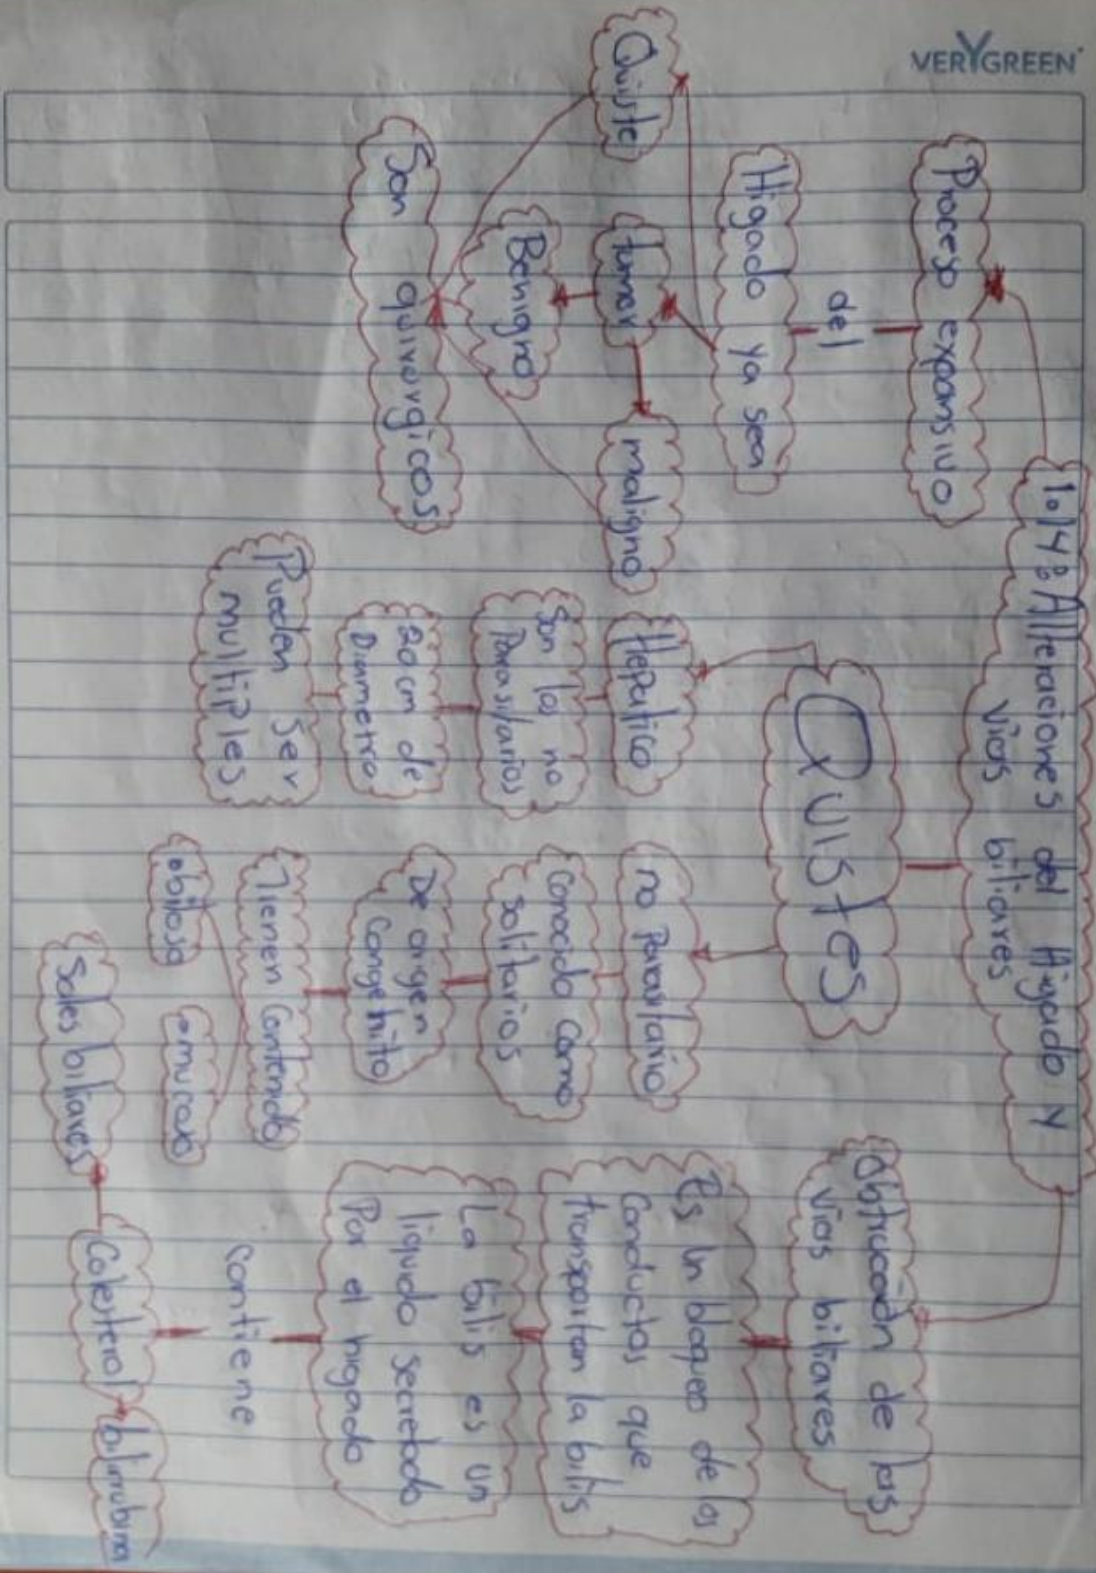 VERYGREEN
1.14: Alteraciones del Higado y
vias biliares
Proceso expansivo
del
Higado ya sea
Quiste
tumor
maligno
Benigno
Son quirurgicos
Quistes
Hepatico
Son los no
Parasitarios
20 cm de
Diametro
Pueden ser
multiples
no Parasitario
Conocido como
solitarios
De origen
Congenito
Tienen Contenido
•biliosa
•mucosa
Obtrucción de las
vias biliares
Es un bloqueo de los
Conductos que
transportan la bilis
La bilis es un
liquido secretado
Por el higado
Contiene
Colesterol
Sales biliares
bilirrubina